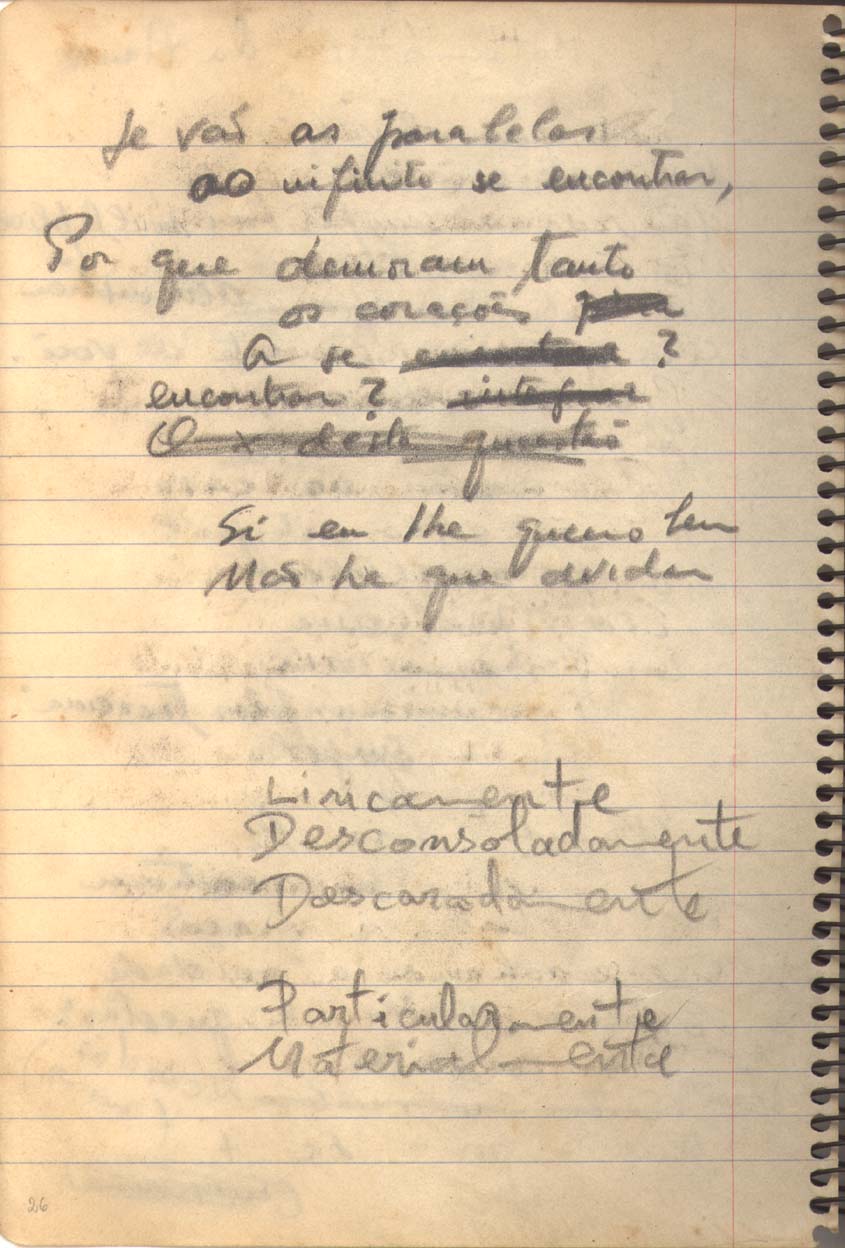 Se vão as paralelas
ao infinito se encontrar,
Por que demoram tanto
os corações para
A se encontrar ?
encontrar ? integrar
O x desta questão
Si eu lhe quero bem
Não he que duvidar
Liricamente
Desconsoladamente
Descaradamente
Particularmente
Materialmente
26